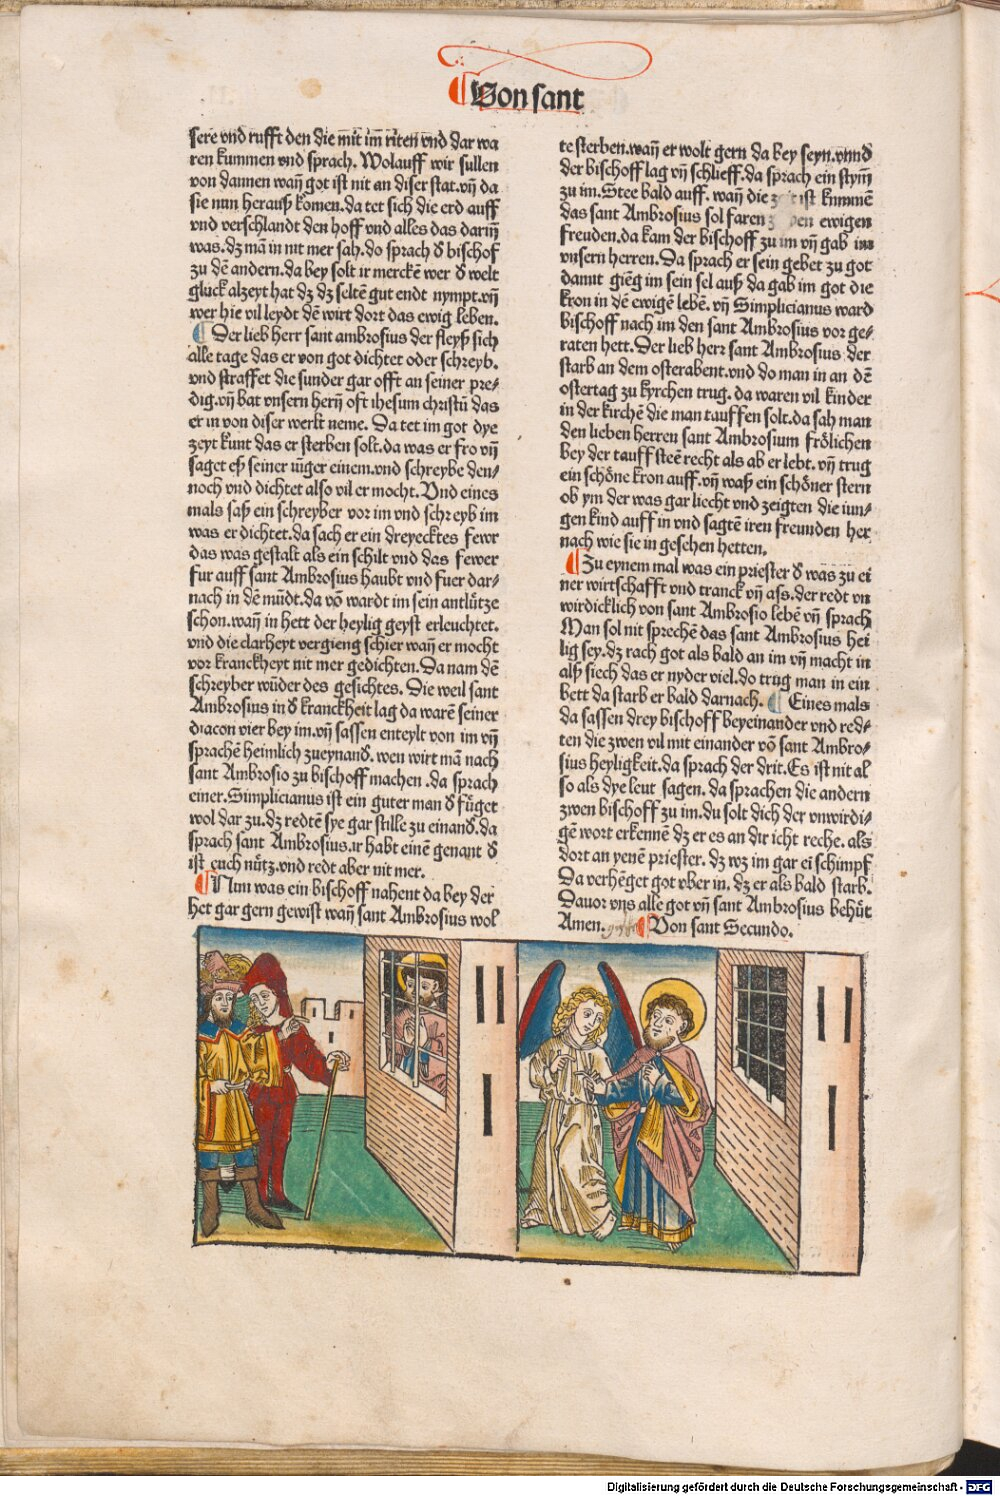 Von sant
sere vnd rufft den die mit im̄ riten vnd dar wa
ren kummen vnd sprach. Wolauff wir sullen
von dannen wañ got ist nit an diser stat. vñ da
sie nun herauß komen. da tet sich die erd auff
vnd verschlandt den hoff vnd alles das dariñ
was. dz mā in nit mer sah. do sprach d̕ bischof
zu dē andern. da bey solt ir merckē wer d̕ welt
gluck alzeyt hat dz dz seltē gut endt nympt. vñ
wer hie vil leydt dē wirt dort das ewig leben.
¶ Der lieb herr sant ambrosius der fleyß sich
alle tage das er von got dichtet oder schreyb.
vnd straffet die sunder gar offt an seiner pre⸗
dig. vñ bat vnsern herñ oft ihesum christū das
er in von diser werlt neme. Da tet im got dye
zeyt kunt das er sterben solt. da was er fro vñ
saget eß seiner iūger einem. vnd schreybe den⸗
noch vnd dichtet also vil er mocht. Vnd eines
mals saß ein schreyber vor im vnd schreyb im
was er dichtet. da sach er ein dreyecktes fewr
das was gestalt als ein schilt vnd das fewer
fur auff sant Ambrosius haubt vnd fuer dar⸗
nach in dē mūdt. da vō wardt im sein antlütze
schon. wañ in hett der heylig geyst erleuchtet.
vnd die clarheyt vergieng schier wañ er mocht
vor kranckheyt nit mer gedichten. Da nam dē
schreyber wūder des gesichtes. Die weil sant
Ambrosius in d̕ kranckheit lag da warē seiner
diacon vier bey im. vñ sassen enteylt von im vñ
sprachē heimlich zueynand̕. wen wirt mā nach
sant Ambrosio zu bischoff machen. da sprach
einer. Simplicianus ist ein guter man d̕ füget
wol dar zu. dz redtē sye gar stille zu einand̕. da
sprach sant Ambrosius. ir habt einē genant d̕
ist euch nütz. vnd redt aber nit mer.
¶ Nun was ein bischoff nahent da bey der
het gar gern gewist wañ sant Ambrosius wol
te sterben. wañ er wolt gern da bey seyn. vnnd
der bischoff lag vñ schlieff. da sprach ein stym̄
zu im. Stee bald auff. wañ die ist kummē
das sant Ambrosius sol faren ewigen
freuden. da kam der bischoff zu im vñ gab im
vnsern herren. Da sprach er sein gebet zu got
damit gieng im sein sel auß da gab im got die
kron in dē ewigē lebē. vñ Simplicianus ward
bischoff nach im den sant Ambrosius vor ge⸗
raten hett. Der lieb herr sant Ambrosius der
starb an dem osterabent. vnd do man in an dē
ostertag zu kyrchen trug. da waren vil kinder
in der kirchē die man tauffen solt. da sah man
den lieben herren sant Ambrosium frölichen
bey der tauff steē recht als ab er lebt. vñ trug
ein schöne kron auff. vñ waß ein schöner stern
ob ym der was gar liecht vnd zeigten die iun⸗
gen kind auff in vnd sagtē iren freunden her
nach wie sie in gesehen hetten.
¶ Zu eynem mal was ein priester d̕ was zu ei
ner wirtschafft vnd tranck vñ ass. der redt vn
wirdicklich von sant Ambrosio lebē vñ sprach
Man sol nit sprechē das sant Ambrosius hei
lig sey. dz rach got als bald an im vñ macht in
alß siech das er nyder viel. do trug man in ein
bett da starb er bald darnach. ¶ Eines mals
da sassen drey bischoff beyeinander vnd red⸗
ten die zwen vil mit einander vō sant Ambro⸗
sius heyligkeit. da sprach der drit. Es ist nit al
so als dye leut sagen. da sprachen die andern
zwen bischoff zu im. du solt dich der vnwirdi⸗
gē wort erkennē dz er es an dir icht reche. als
dort an yenē priester. dz wz im gar ei schimpf
Da verhēget got vber in. dz er als bald starb.
Dauor vns alle got vñ sant Ambrosius behüt
Amen. ¶ Von sant Secundo.
Digitalisierung gefördert durch die Deutsche Forschungsgemeinschaft - DFG